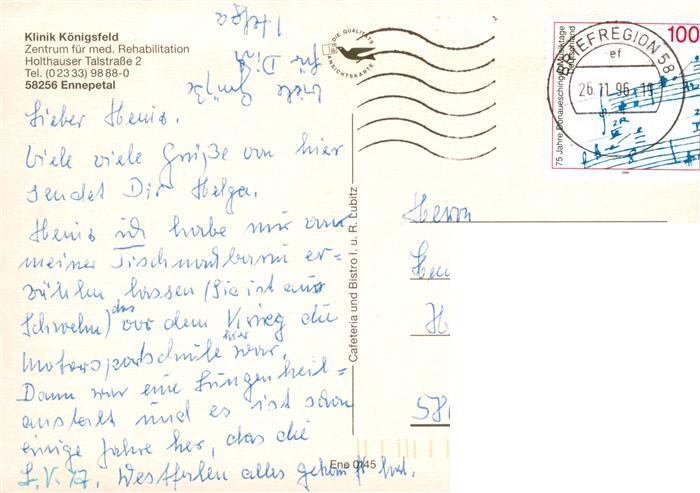 Klinik Königsfeld
Zentrum für med. Rehabilitation
Holthauser Talstraße 2
Tel. (0 23 33) 98 88-0
58256 Ennepetal
Lieber Heniz.
Viele viele Grüße von hier
sendet Dir Helga.
Heniz ich habe mir von
meiner Tischnachbarin er=
zählen lassen (Sie ist aus
Schwelm) das vor dem Krieg die
Motorsportschule hier war.
Dann war eine Lungenheil=
anstalt und es ist schon
einige Jahre her, das die
L.V.A. Westfalen alles gekauft hat.
Viele Grüße
für Dich
Helga
DIE QUALITÄTS
ANSICHTSKARTE
Cafeteria und Bistro I. u. R. Lubitz
Ene 0145
BRIEFREGION 58
ef
26.11.96
75 Jahre Donaueschinger Musiktage
Deutschland
100
1996
Herrn
H
58